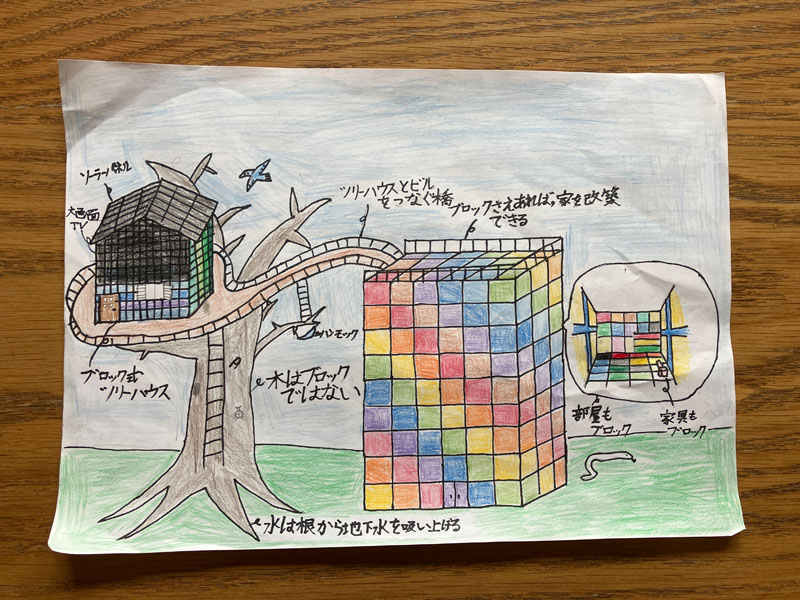 ソーラーパネル
大画面
TV
ツリーハウスとビル
をつなぐ橋
ブロックさえあれば、家を改築
できる
ハンモック
ブロック式
ツリーハウス
木はブロック
ではない
部屋も
ブロック
家具も
ブロック
水は根から地下水を吸い上げる